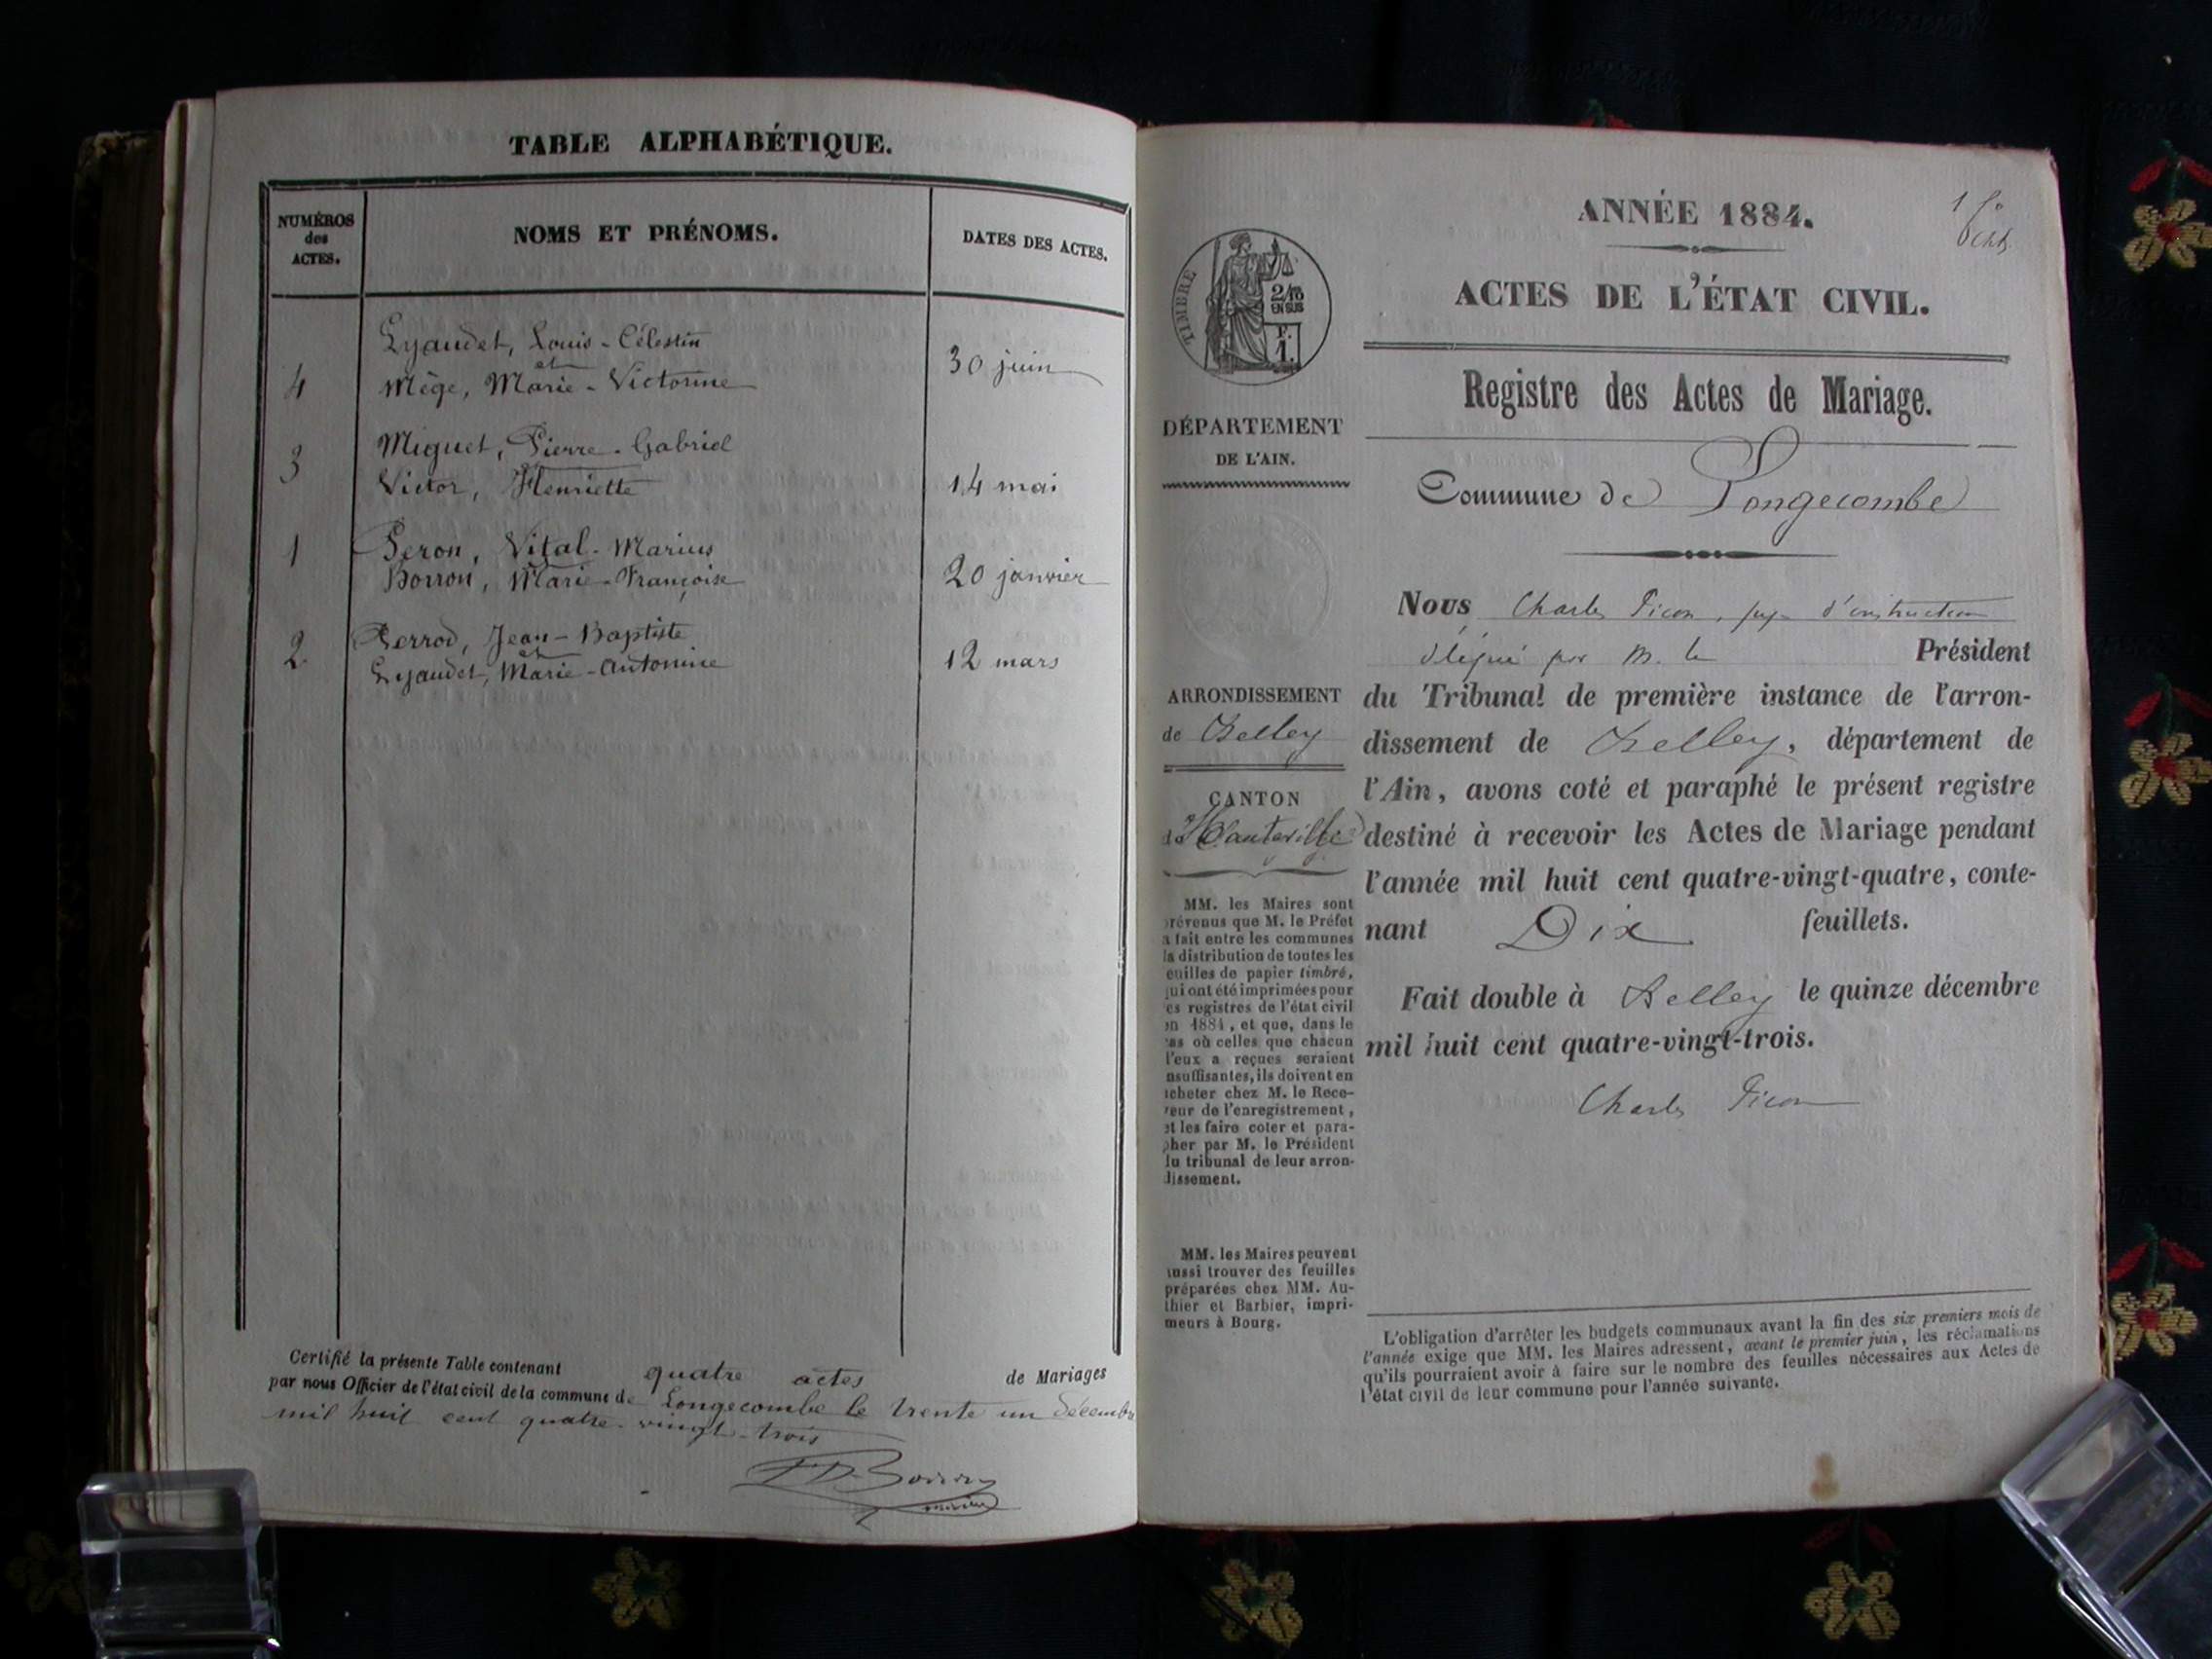 TABLE ALPHABÉTIQUE.
NUMÉROS
des
ACTES.
NOMS ET PRÉNOMS.
DATES DES ACTES.
4
Lyaudet, Louis-Célestin
et
Mège, Marie-Victorine
30 juin
3
Miguet, Pierre-Gabriel
Victor, Henriette
14 mai
1
Peron, Vital-Marius
Borron, Marie-Françoise
20 janvier
2
Perrod, Jean-Baptiste
et
Lyaudet, Marie-Antonine
12 mars
Certifié la présente Table contenant quatre actes de Mariages
par nous Officier de l'état civil de la commune de Longecombe le trente un décembre
mil huit cent quatre-vingt-trois
ANNÉE 1884.
ACTES DE L'ÉTAT CIVIL.
Registre des Actes de Mariage.
Commune de Longecombe
TIMBRE
2/10
EN SUS
F.
1.
DÉPARTEMENT
DE L'AIN.
ARRONDISSEMENT
de Belley
CANTON
de Hauteville
MM. les Maires sont
prévenus que M. le Préfet
a fait entre les communes
la distribution de toutes les
euilles de papier timbré,
qui ont été imprimées pour
es registres de l'état civil
en 1884, et que, dans le
cas où celles que chacun
d'eux a reçues seraient
insuffisantes, ils doivent en
acheter chez M. le Rece-
veur de l'enregistrement,
et les faire coter et para-
pher par M. le Président
du tribunal de leur arron-
dissement.
MM. les Maires peuvent
aussi trouver des feuilles
préparées chez MM. Au-
thier et Barbier, impri-
meurs à Bourg.
Nous Charles Picon, juge d'instruction
délégué par M. le Président
du Tribunal de première instance de l'arron-
dissement de Belley, département de
l'Ain, avons coté et paraphé le présent registre
destiné à recevoir les Actes de Mariage pendant
l'année mil huit cent quatre-vingt-quatre, conte-
nant Dix feuillets.
Fait double à Belley le quinze décembre
mil huit cent quatre-vingt-trois.
Charles Picon
L'obligation d'arrêter les budgets communaux avant la fin des six premiers mois de
l'année exige que MM. les Maires adressent, avant le premier juin, les réclamations
qu'ils pourraient avoir à faire sur le nombre des feuilles nécessaires aux Actes de
l'état civil de leur commune pour l'année suivante.